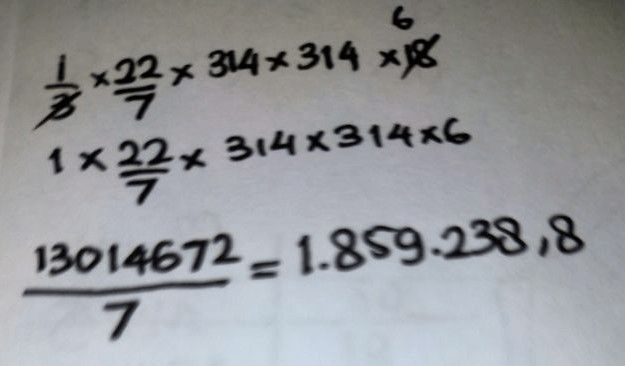 1/3 × 22/7 × 314 × 314 × 18 6
1 × 22/7 × 314 × 314 × 6
13014672/7 = 1.859.238,8